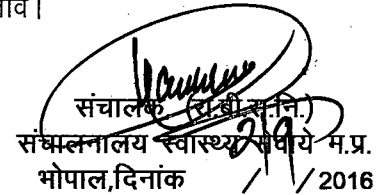 संचालक (रा.बी.स.नि.)
संचालनालय स्वास्थ्य सेवायें म.प्र.
भोपाल,दिनांक / / 2016